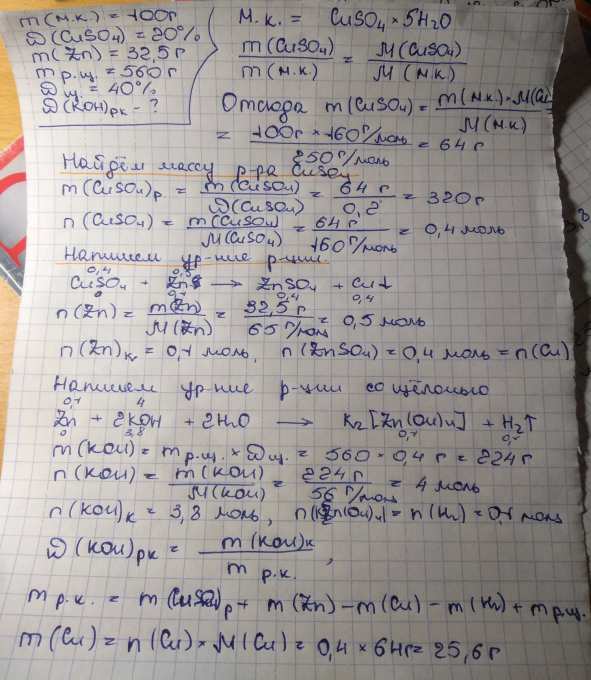 m(м.к.) = 100г
ω(CuSO4) = 20%
m(Zn) = 32,5г
m р.щ. = 560г
ω щ. = 40%
ω(KOH)рк - ?
м.к. = CuSO4 × 5H2O
m(CuSO4) / m(м.к.) = M(CuSO4) / M(м.к.)
Отсюда m(CuSO4) = m(м.к.) × M(Cu / M(м.к)
= 100г × 160г/моль / 250г/моль = 64г
Найдём массу р-ра CuSO4
m(CuSO4)р = m(CuSO4) / ω(CuSO4) = 64г / 0,2 = 320г
n(CuSO4) = m(CuSO4) / M(CuSO4) = 64г / 160г/моль = 0,4 моль
Напишем ур-ние р-ции.
0,4 0,5
CuSO4 + Zn → ZnSO4 + Cu↓
0 0,1 0,4 0,4
n(Zn) = m(Zn) / M(Zn) = 32,5г / 65г/моль = 0,5 моль
n(Zn)к = 0,1 моль, n(ZnSO4) = 0,4 моль = n(Cu)
Напишем ур-ние р-ции со щёлочью
0,1 4
Zn + 2KOH + 2H2O → K2[Zn(OH)4] + H2↑
0 3,8 0,1 0,1
m(KOH) = m р.щ. × ω щ. = 560 × 0,4г = 224г
n(KOH) = m(KOH) / M(KOH) = 224г / 56г/моль = 4 моль
n(KOH)к = 3,8 моль, n(K2Zn(OH)4) = n(H2) = 0,1 моль
ω(KOH)рк = m(KOH)к / m р.к. ,
m р.к. = m(CuSO4)р + m(Zn) - m(Cu) - m(H2) + m р.щ.
m(Cu) = n(Cu) × M(Cu) = 0,4 × 64г = 25,6г